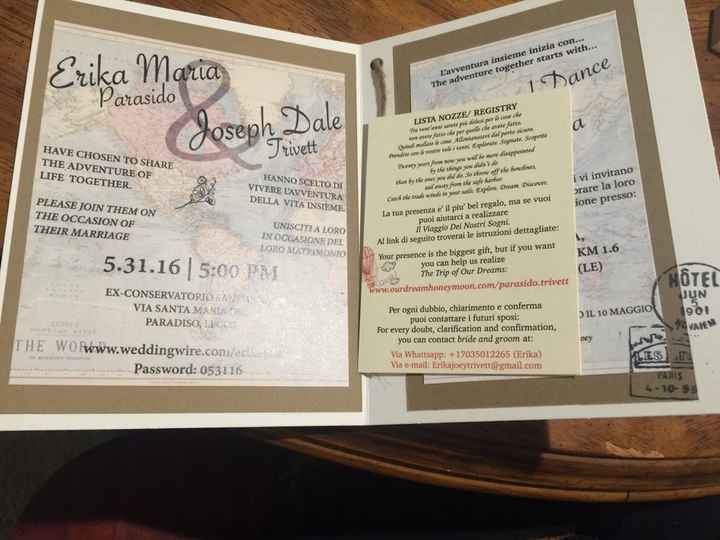 Erika Maria
Parasido
&
Joseph Dale
Trivett
HAVE CHOSEN TO SHARE
THE ADVENTURE OF
LIFE TOGETHER.
HANNO SCELTO DI
VIVERE L'AVVENTURA
DELLA VITA INSIEME.
PLEASE JOIN THEM ON
THE OCCASION OF
THEIR MARRIAGE
UNISCITI A LORO
IN OCCASIONE DEL
LORO MATRIMONIO
5.31.16 | 5:00 PM
EX-CONSERVATORIO
VIA SANTA MARIA
PARADISO, LECCE
THE WORLD
www.weddingwire.com/
Password: 053116
L'avventura insieme inizia con...
The adventure together starts with...
Dance
LISTA NOZZE/ REGISTRY
Tra vent'anni sarete più delusi per le cose che
non avete fatto che per quelle che avete fatto.
Quindi mollate le cime. Allontanatevi dal porto sicuro.
Prendete con le vostre vele i venti. Esplorate. Sognate. Scoprite
Twenty years from now you will be more disappointed
by the things you didn't do
than by the ones you did do. So throw off the bowlines,
sail away from the safe harbor.
Catch the trade winds in your sails. Explore. Dream. Discover.
La tua presenza e' il piu' bel regalo, ma se vuoi
puoi aiutarci a realizzare
Il Viaggio Dei Nostri Sogni.
Al link di seguito troverai le istruzioni dettagliate:
Your presence is the biggest gift, but if you want
you can help us realize
The Trip of Our Dreams:
www.ourdreamhoneymoon.com/parasido.trivett
Per ogni dubbio, chiarimento e conferma
puoi contattare i futuri sposi:
For every doubt, clarification and confirmation,
you can contact bride and groom at:
Via Whatsapp: +17035012265 (Erika)
Via e-mail: Erikajoeytrivett@gmail.com
vi invitano
la loro
presso:
KM 1.6
(LE)
IL 10 MAGGIO
HÔTEL
JUN
5
1901
PARIS
4-10-